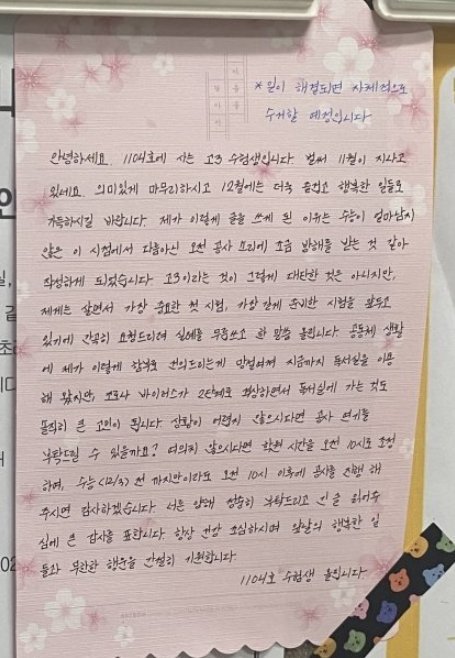 * 일이 해결되면 자체적으로
수거할 예정입니다
마음을
담아서
안녕하세요. 1104호에 사는 고3 수험생입니다. 벌써 11월이 지나고
있네요. 의미있게 마무리하시고 12월에는 더욱 즐겁고 행복한 일들로
가득하시길 바랍니다. 제가 이렇게 글을 쓰게 된 이유는 수능이 얼마남지
않은 이 시점에서 다름아닌 오전 공사 소리에 조금 방해를 받는 것 같아
작성하게 되었습니다. 고3이라는 것이 그렇게 대단한 것은 아니지만,
제게는 살면서 가장 중요한 첫 시험, 가장 길게 준비한 시험을 앞두고
있기에 간곡히 요청드리려 실례를 무릅쓰고 한 말씀 올립니다. 공동체 생활
에 제가 이렇게 함부로 건의드리는게 망설여져 지금까지 독서실을 이용
해 왔지만, 코로나 바이러스가 2단계로 격상하면서 독서실에 가는 것도
솔직히 큰 고민이 됩니다. 상황이 어렵지 않으시다면 공사 연기를
부탁드릴 수 있을까요? 여의치 않으시다면 시간을 오전 10시로 조정
하여, 수능(12/3) 전 까지만이라도 오전 10시 이후에 공사를 진행 해
주시면 감사하겠습니다. 너른 양해 정중히 부탁드리고 이 글 읽어주
심에 큰 감사를 표합니다. 항상 건강 조심하시며 앞날의 행복한 일
들과 무한한 행운을 간절히 기원합니다.
1104호 수험생 올립니다.